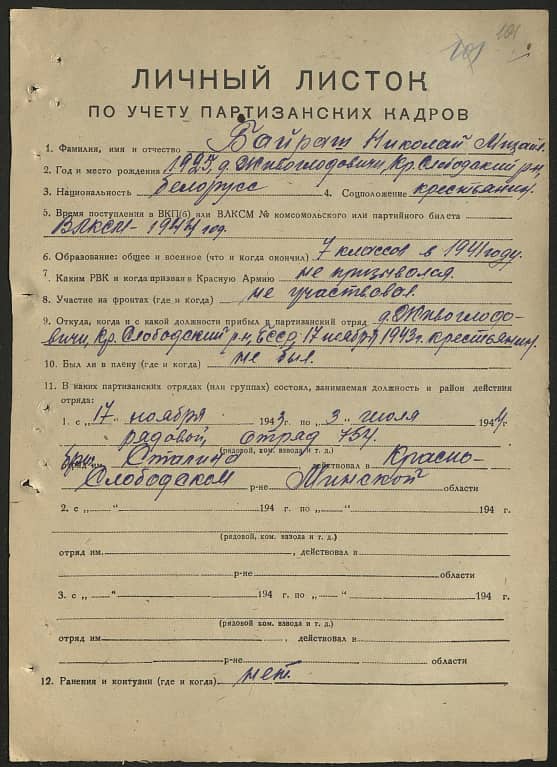 101
101
ЛИЧНЫЙ ЛИСТОК
ПО УЧЕТУ ПАРТИЗАНСКИХ КАДРОВ
1. Фамилия, имя и отчество Байраш Николай Михайл.
2. Год и место рождения 1927, д. Живоглодовичи, Кр. Слободский р-н,
3. Национальность белорусс 4. Соцположение крестьянин.
5. Время поступления в ВКП(б) или ВЛКСМ № комсомольского или партийного билета
ВЛКСМ - 1944 год.
6. Образование: общее и военное (что и когда окончил) 7 классов в 1941 году.
7. Каким РВК и когда призван в Красную Армию не призывался.
8. Участие на фронтах (где и когда) не участвовал.
9. Откуда, когда и с какой должности прибыл в партизанский отряд д. Живоглодо-
вичи, Кр. Слободский р-н, БССР 17 ноября 1943 г. крестьянин.
10. Был ли в плену (где и когда) не был.
11. В каких партизанских отрядах (или группах) состоял, занимаемая должность и район действия
отряда:
1. с „ 17 “ ноября 1943 г. по „ 3 “ июля 1944 г.
рядовой, отряд 752.
(рядовой, ком. взвода и т. д.)
бриг. им. Сталина действовал в Красно-
Слободском р-не Минской области
2. с „ “ 194 г. по „ “ 194 г.
(рядовой, ком. взвода и т. д.)
отряд им. , действовал в
р-не области
3. с „ “ 194 г. по „ “ 194 г.
(рядовой, ком. взвода и т. д.)
отряд им. , действовал в
р-не области
12. Ранения и контузии (где и когда) нет.